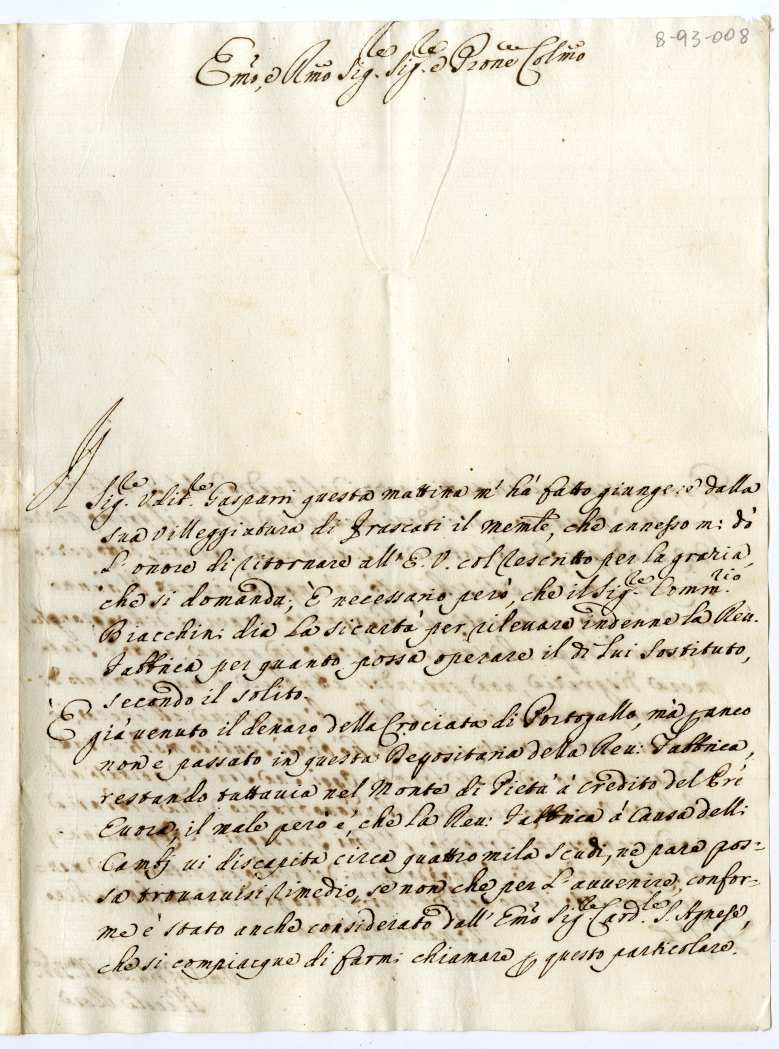 8-93-008
Em̃o, e Rm̃o Sig.re Sig.re e Pron̄e Colm̃o
Il
Sig.re Udit.re Gasparri questa mattina m' hà fatto giungere dalla
sua villeggiatura di Frascati il memle, che annesso mi dò
l'onore di ritornare all'E. V. col rescritto per la grazia,
che si domanda; È necessario però, che il Sig.re Comm.rio
Biacchini dia la sicurtà per rilevare indenne la Reu:
Fabbrica per quanto possa operare il di lui sostituto,
secondo il solito.
È già venuto il denaro della Crociata di Portogallo, mà p anco
non è passato in questa Depositaria della Reu: Fabbrica,
restando tuttavia nel Monte di Pietà à credito del
Euora; il male però è, che la Reu: Fabbrica à causa delli
Cambj vi discapita circa quattro mila scudi, ne pare pos-
sa trovarvisi rimedio, se non che per l'avvenire, confor-
me è stato anche considerato dall' Em̃o Sig.re Card.le S. Agnese,
che si compiacque di farmi chiamare p questo particolare.